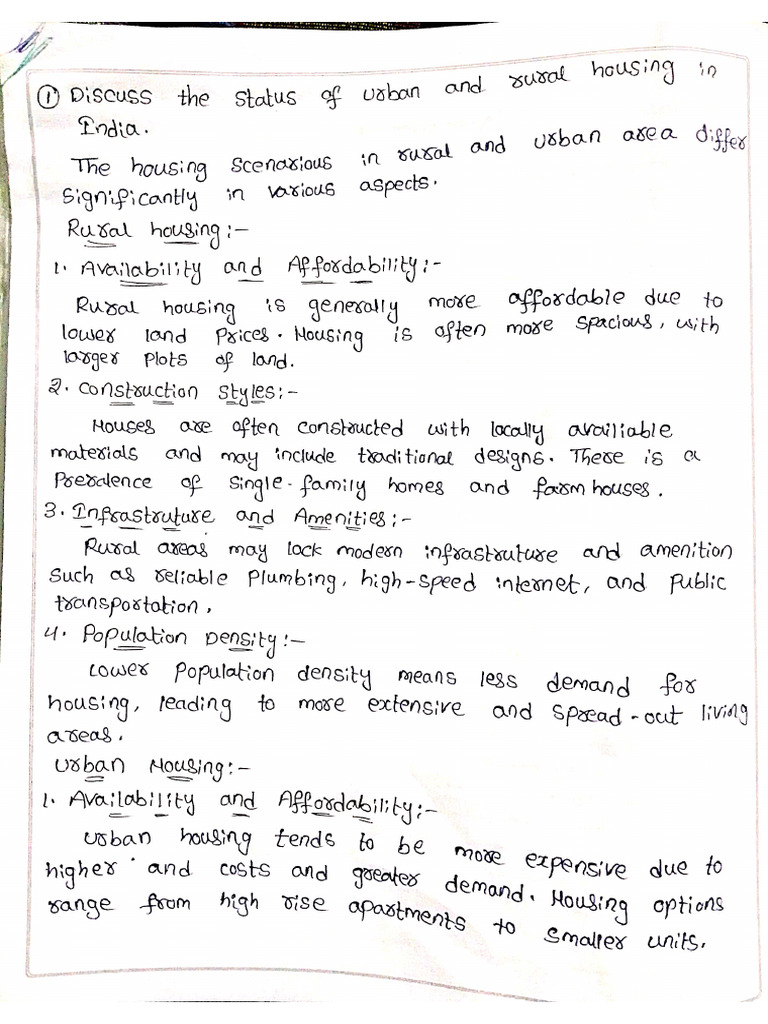 ① Discuss the status of urban and rural housing in
India.
The housing scenarious in rural and urban area differ
significantly in various aspects.
Rural housing:-
1. Availability and Affordability:-
Rural housing is generally more affordable due to
lower land prices. Housing is often more spacious, with
larger plots of land.
2. Construction Styles:-
Houses are often constructed with locally availiable
materials and may include traditional designs. There is a
prevalence of single-family homes and farm houses.
3. Infrastruture and Amenities:-
Rural areas may lack modern infrastruture and amenition
such as reliable plumbing, high-speed internet, and public
transportation.
4. Population Density:-
Lower population density means less demand for
housing, leading to more extensive and spread-out living
areas.
Urban Housing:-
1. Availability and Affordability:-
Urban housing tends to be more expensive due to
higher and costs and greater demand. Housing options
range from high rise apartments to smaller units.